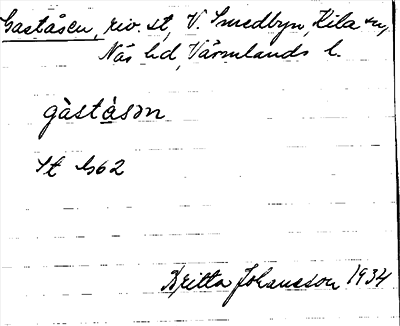 Gaståsen, riv. st, V. Smedbyn, Kila sn,
Näs hd, Värmlands l.
gàstàsən
St b62
Britta Johansson 1934